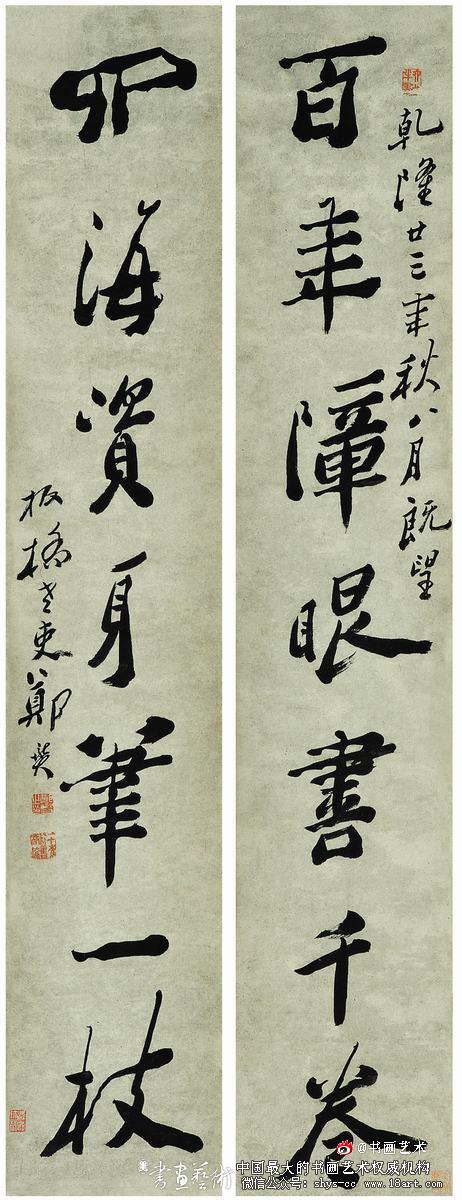 乾隆廿三年秋八月既望
百年障眼書千卷
四海資身筆一枝
板橋老吏鄭燮
@书画艺术
書画藝術
中国最大的书画艺术权威机构
微信公众号：shys-cc www.18art.com